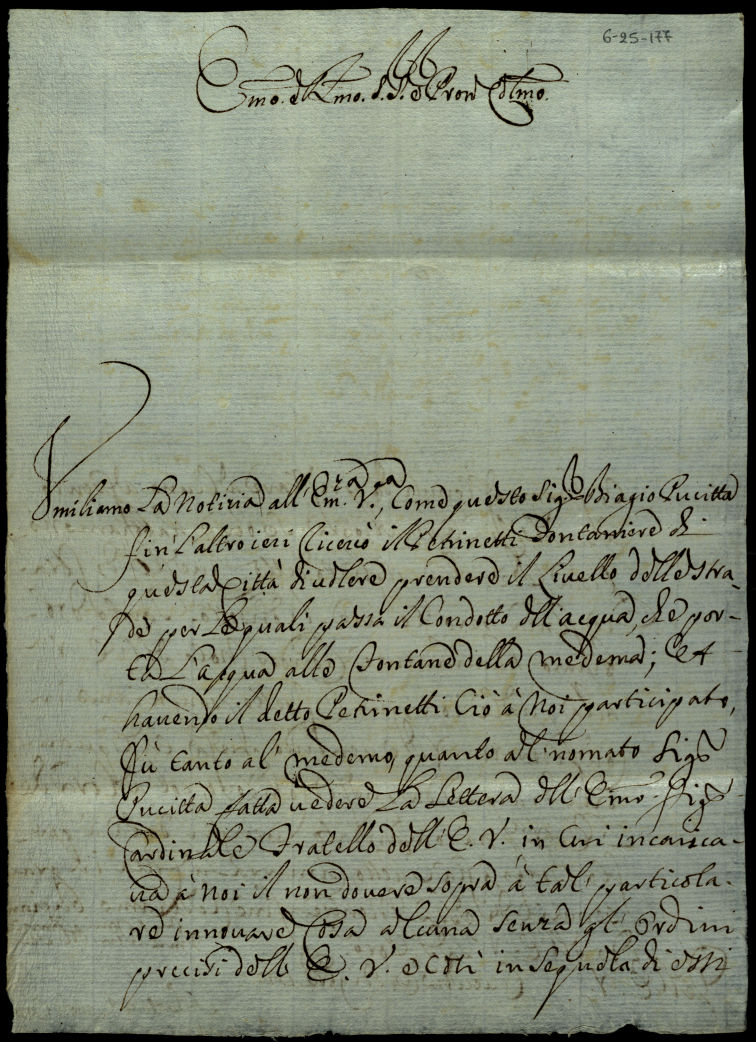 6-25-177
Emo. e Rmo. S. S. e Pron Colmo.
Umiliamo la Notizia all' Em.ra V.ra, Come questo Sig.e Biagio Pucitta
fin l'altro ieri ricercò il Petrinetti Fontaniere di
questa Città di volere prendere il Livello delle stra-
de per le quali passa il Condotto dell'acqua, che por-
ta l'acqua alle Fontane della medema; et
havendo il detto Petrinetti Ciò à Noi participato,
fù tanto al' medemo, quanto al' nomato Sig.e
Pucitta fatta vedere la Lettera dell' Emo. Sig.e
Cardinale Fratello dell' E. V. in Cui incarica-
va à Noi il non dovere sopra à tal' particola-
re innovare Cosa alcuna senza gl' Ordini
precisi dell' E. V. e Così in sequela di essi